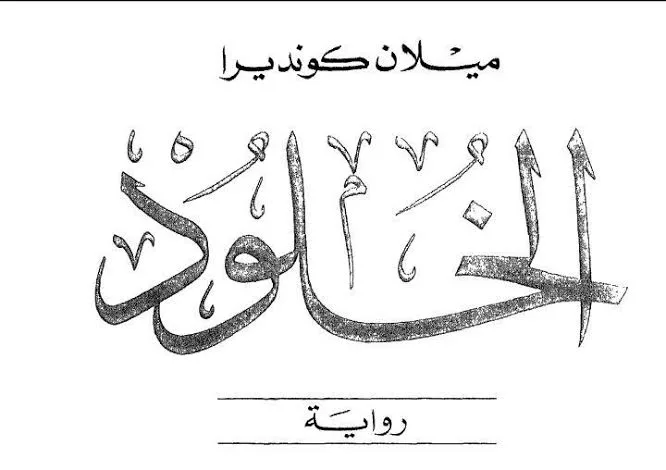 ميلان كونديرا
الخلود
رواية